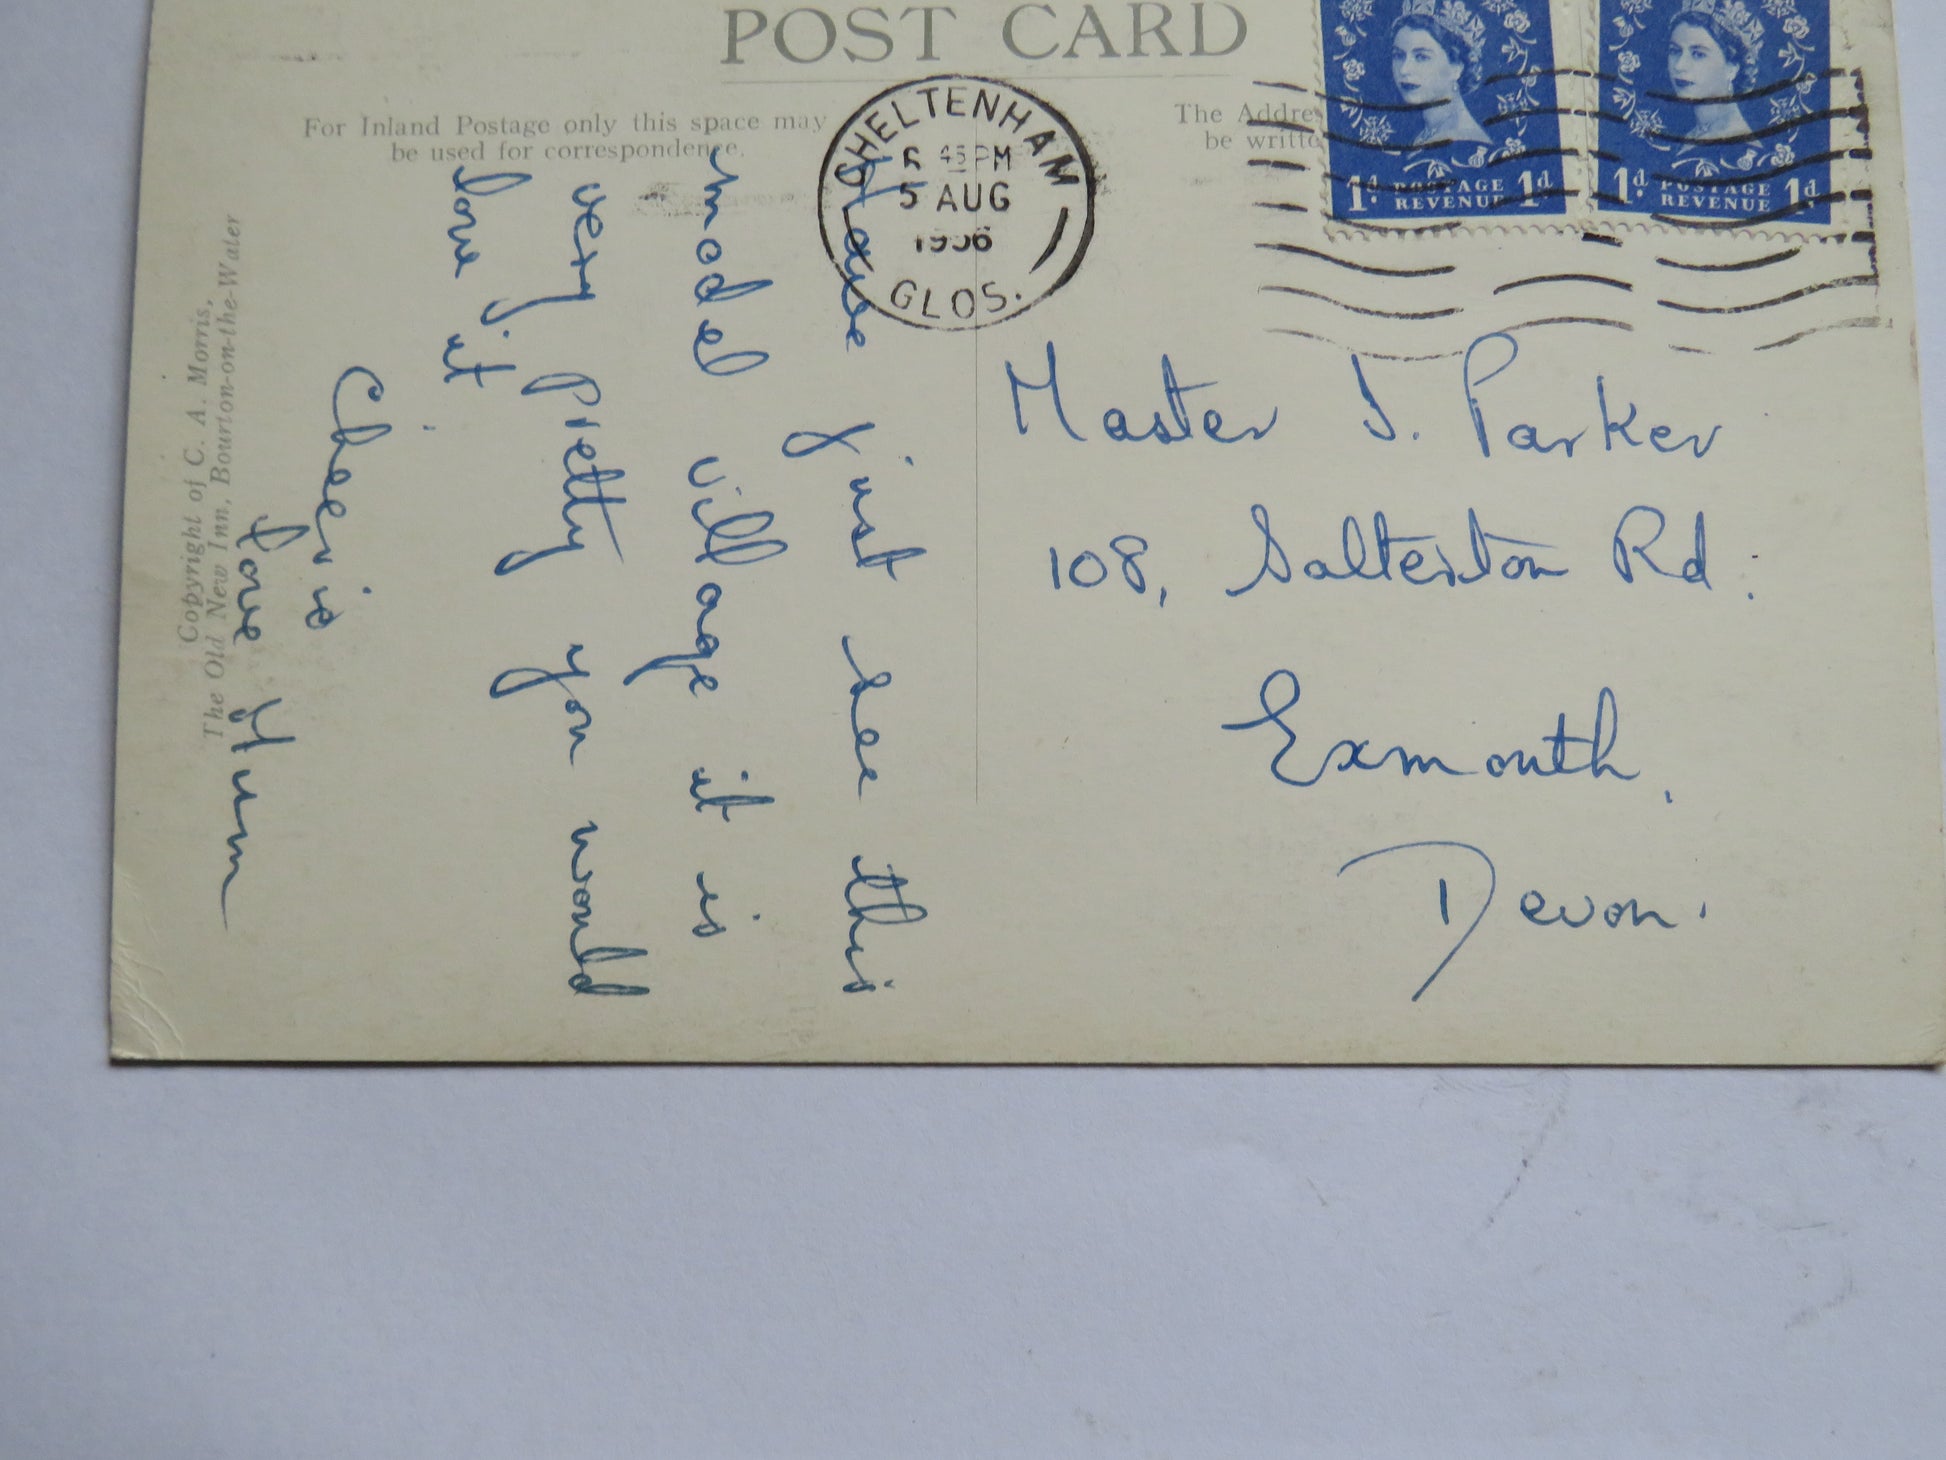 POST CARD
For Inland Postage only this space may
be used for correspondence.
The Addre
be writte
CHELTENHAM
45 PM
5 AUG
1956
GLOS.
1d. POSTAGE REVENUE 1d.
1d. POSTAGE REVENUE 1d.
Have just see this
model village it is
very pretty you would
love it.
Cheerio
love Mum
Master J. Parker
108, Salterton Rd:
Exmouth,
Devon.
Copyright of C. A. Morris,
The Old New Inn, Bourton-on-the-Water